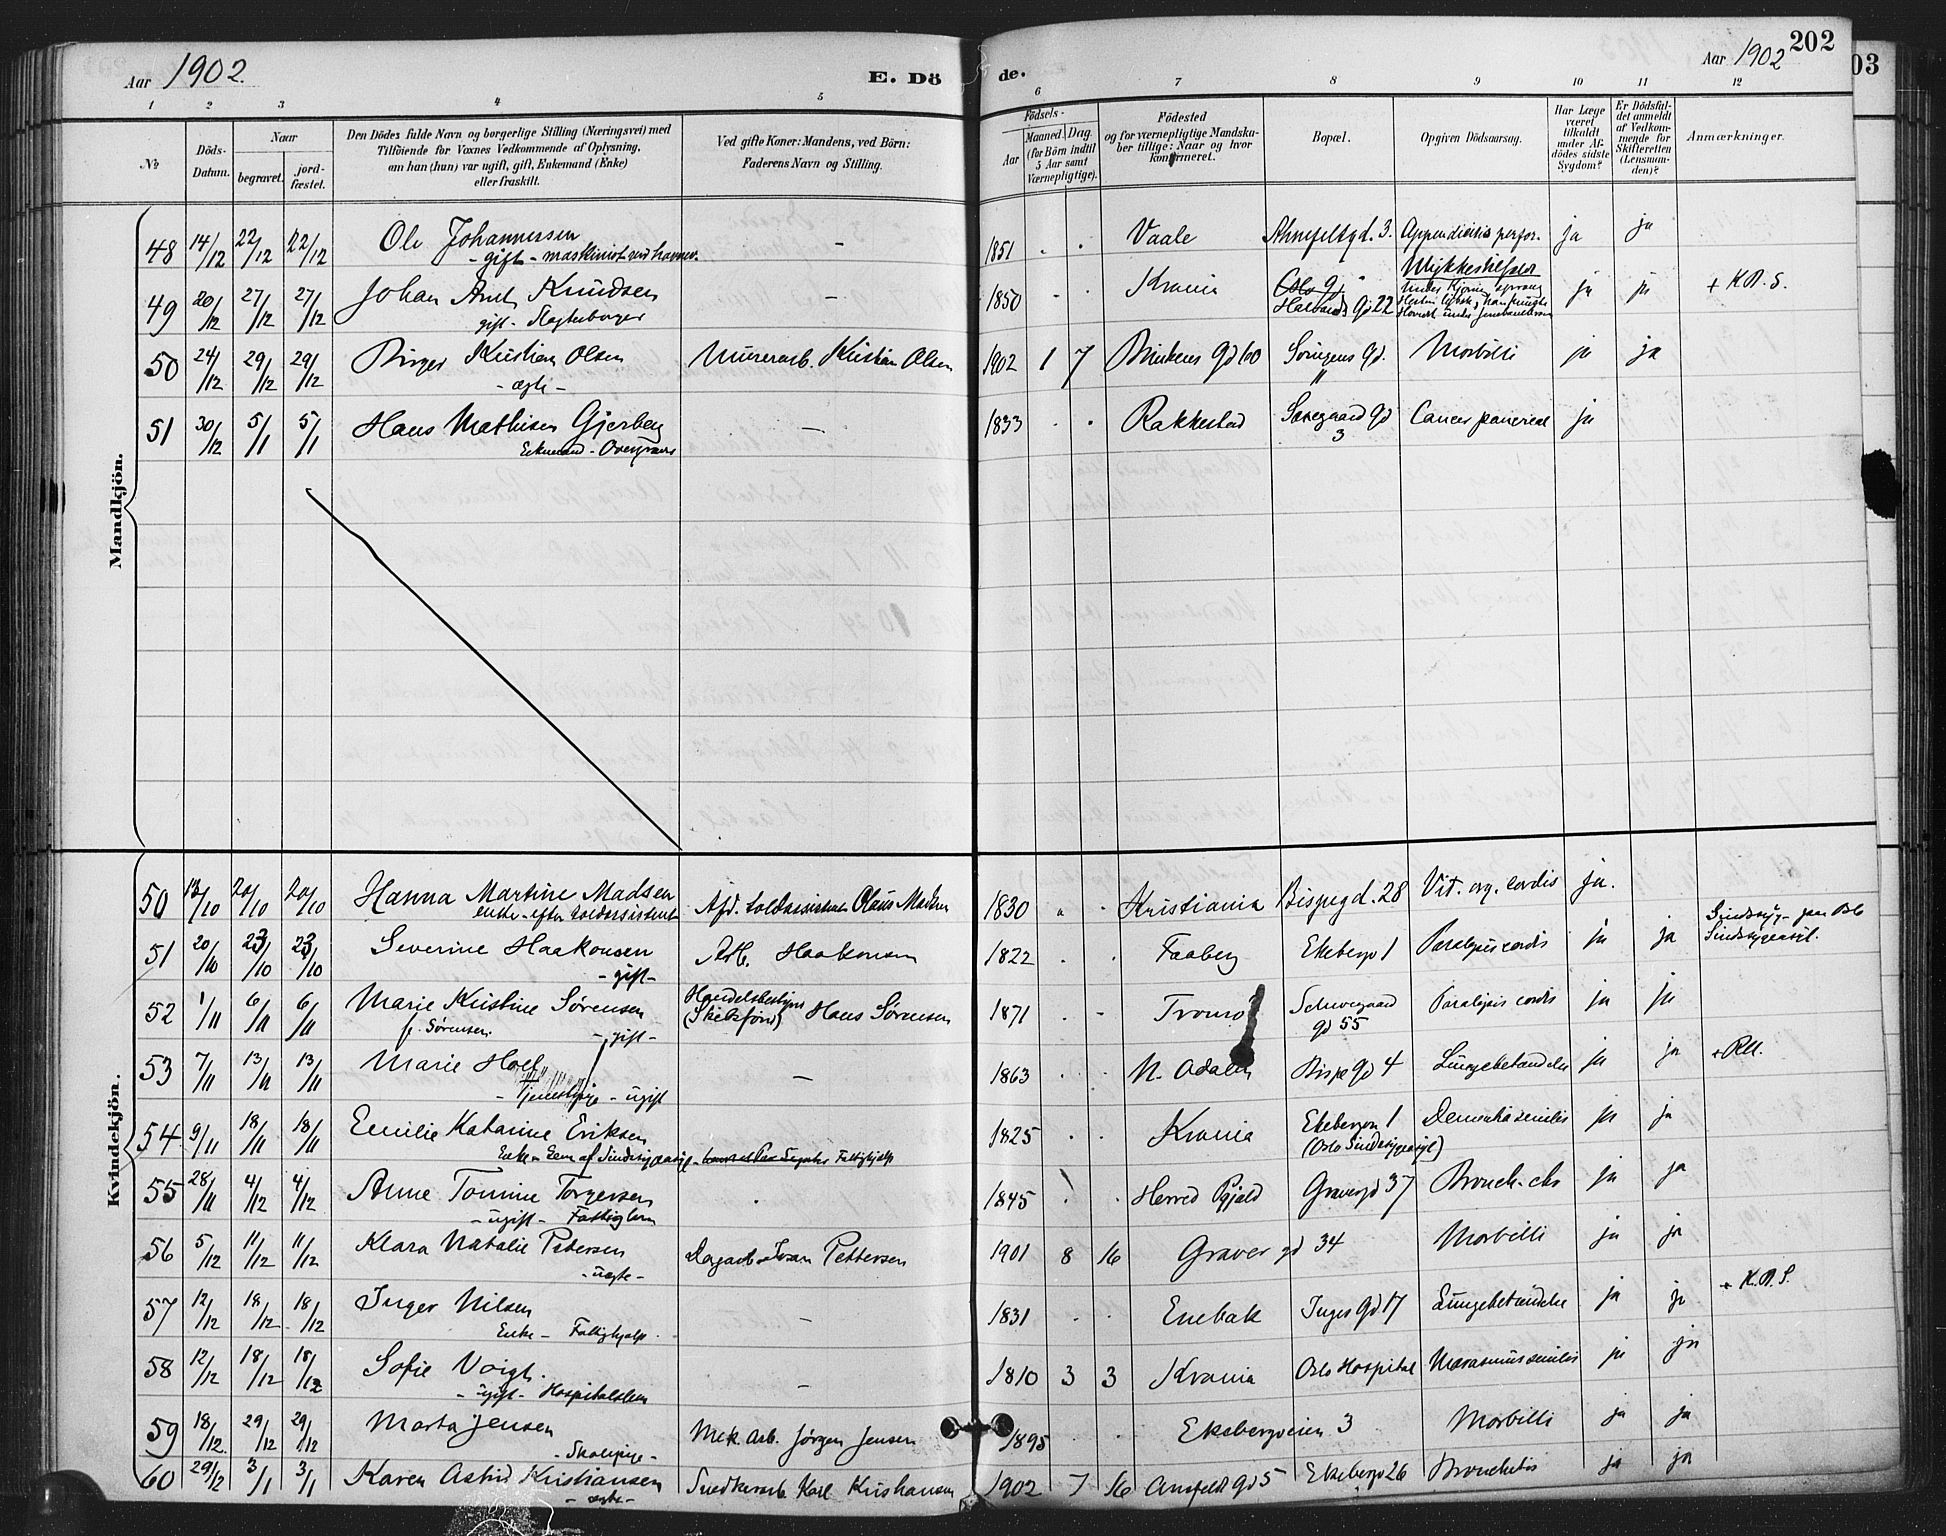 Aar 1902.
E. Dö
de.
Aar 1902
202
03
1 2 3 4 5 6 7 8 9 10 11 12
No.
Döds-Datum.
Naar
begravet.
jord-fæstet.
Den Dödes fulde Navn og borgerlige Stilling (Næringsvei) med
Tilföiende for Voxnes Vedkommende af Oplysning,
om han (hun) var ugift, gift, Enkemand (Enke)
eller fraskilt.
Ved gifte Koner: Mandens, ved Börn:
Faderens Navn og Stilling.
Födsels-
Aar
Maaned Dag
(for Börn indtil
5 Aar samt
Værnepligtige).
Födested
og for værnepligtige Mandska-
ber tillige: Naar og hvor
konfirmeret.
Bopæl.
Opgiven Dödsaarsag.
Har Læge
været
tilkaldt
under Af-
dödes sidste
Sygdom?
Er Dödsfal-
det anmeldt
af Vedkom-
mende for
Skifteretten
(Lensman-
den)?
Anmærkninger.
Mandkjön.
48 14/12 22/12 22/12 Ole Johannessen - 1851 Vaale 3. Appendicitis perfor. ja ja
- gift - maskinist ved havnev.
49 20/12 27/12 27/12 Johan Knudsen - 1850 Krania Ulykkestilfælde ja ja + K.B.S.
gift - Slagterborger
Oslo g
Harbards gd 22
50 24/12 29/12 29/12 Birger Kristian Olsen Murerarb. Kristian Olsen 1902 1 7 gd 60 Sørengens gd. Morbilli ja ja
- ægte -
51 30/12 5/1 5/1 Hans Mathisen Gjerberg - 1833 Rakkestad gd 3 Cancer pancreas ja
Enkemand -
Kvindekjön.
50 13/10 20/10 20/10 Hanna Martine Madsen Afd. toldassistent Olaus Madsen 1830 Kristiania Bispegd. 28 Vit. org. cordis ja.
enke - efter toldassistent
51 20/10 23/10 23/10 Severine Haakonsen Arb. Haakonsen 1822 Faaberg Ekebergv 1 Paralysis cordis ja ja
- gift -
Sindssygeasyl.
52 1/11 6/11 6/11 Marie Kristine Sørensen Handelsbestyrer Hans Sørensen 1871 Tromsø Schweigaard gd 55 Paralysis cordis ja ja
f. Sørensen. - gift -
53 7/11 13/11 13/11 Marie Hoel - 1863 N. Adalen Bispegd 4 Lungebetændelse ja ja
- Tjenestepige - ugift
54 9/11 18/11 18/11 Emilie Katarine Eriksen 1825 Krania Ekebergvn 1 Dementia senilis ja ja
(Oslo Sindssygeasyl)
Enke - Lem af Sindssygeasyl - Fattighjælp
55 28/11 4/12 4/12 Anne Tomine Torgersen 1845 Gravergd 37 Bronch. chr. ja ja
- ugift - Fattiglem
56 5/12 11/12 11/12 Klara Natalie Petersen Dagarb. Ivan Pettersen 1901 8 16 Graver gd 34 Morbilli ja ja
- uægte -
57 12/12 18/12 18/12 Inger Nilsen - 1831 Enebak Inges gd 17 Lungebetændelse ja ja + K.B.S.
Enke - Fattighjælp.
58 12/12 18/12 18/12 Sofie Voigt. - 1810 3 3 Krania Oslo Hospital Marasmus senilis ja ja
- ugift - Hospitalslem
59 18/12 29/12 29/12 Marta Jensen Mek. arb. Jørgen Jensen 1895 Ekebergveien 3 Morbilli ja ja
- Skolepige -
60 29/12 3/1 3/1 Karen Astrid Kristiansen Snedkerarb Karl Kristiansen 1902 7 16 gd 5 Ekebergv 26 Bronchitis ja ja
- ægte -